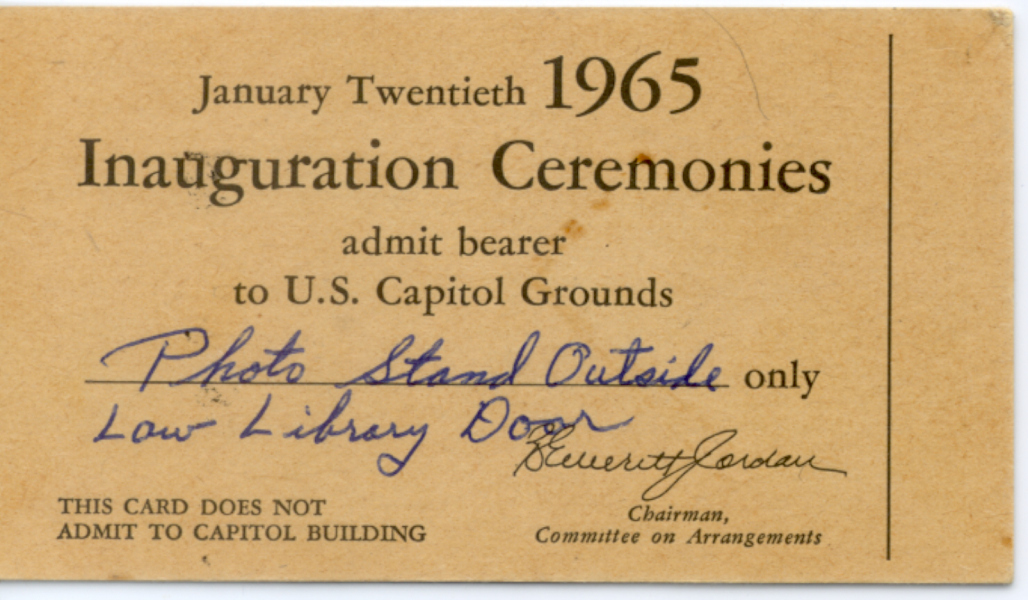 January Twentieth 1965
Inauguration Ceremonies
admit bearer
to U.S. Capitol Grounds
Photo Stand Outside only
Law Library Door
B Everett Jordan
THIS CARD DOES NOT
ADMIT TO CAPITOL BUILDING
Chairman,
Committee on Arrangements